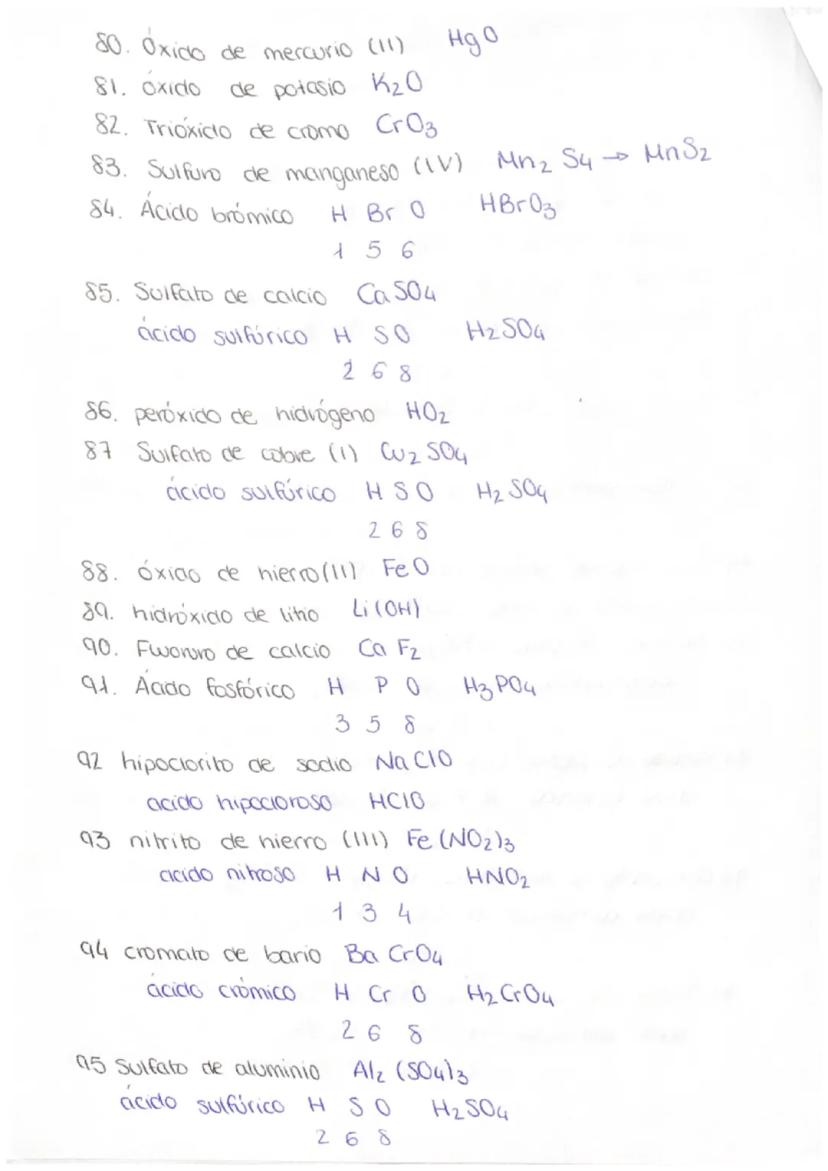 80. Óxido de mercurio (II) HgO
81. óxido de potasio K₂O
82. Trióxido de cromo CrO₃
83. Sulfuro de manganeso (IV) Mn₂ S₄ → MnS₂
84. Ácido brómico H Br O HBrO₃
1 5 6
85. Sulfato de calcio Ca SO₄
ácido sulfúrico H SO H₂SO₄
2 6 8
86. peróxido de hidrógeno HO₂
87 Sulfato de cobre (I) Cu₂ SO₄
ácido sulfúrico H S O H₂ SO₄
2 6 8
88. óxido de hierro (II) FeO
89. hidróxido de litio Li(OH)
90. Fluoruro de calcio Ca F₂
91. Ácido fosfórico H P O H₃PO₄
3 5 8
92 hipoclorito de sodio NaClO
acido hipocloroso HClO
93 nitrito de hierro (III) Fe(NO₂)₃
acido nitroso H N O HNO₂
1 3 4
94 cromato de bario Ba CrO₄
ácido crómico H Cr O H₂CrO₄
2 6 8
95 Sulfato de aluminio Al₂ (SO₄)₃
ácido sulfúrico H S O H₂SO₄
2 6 8